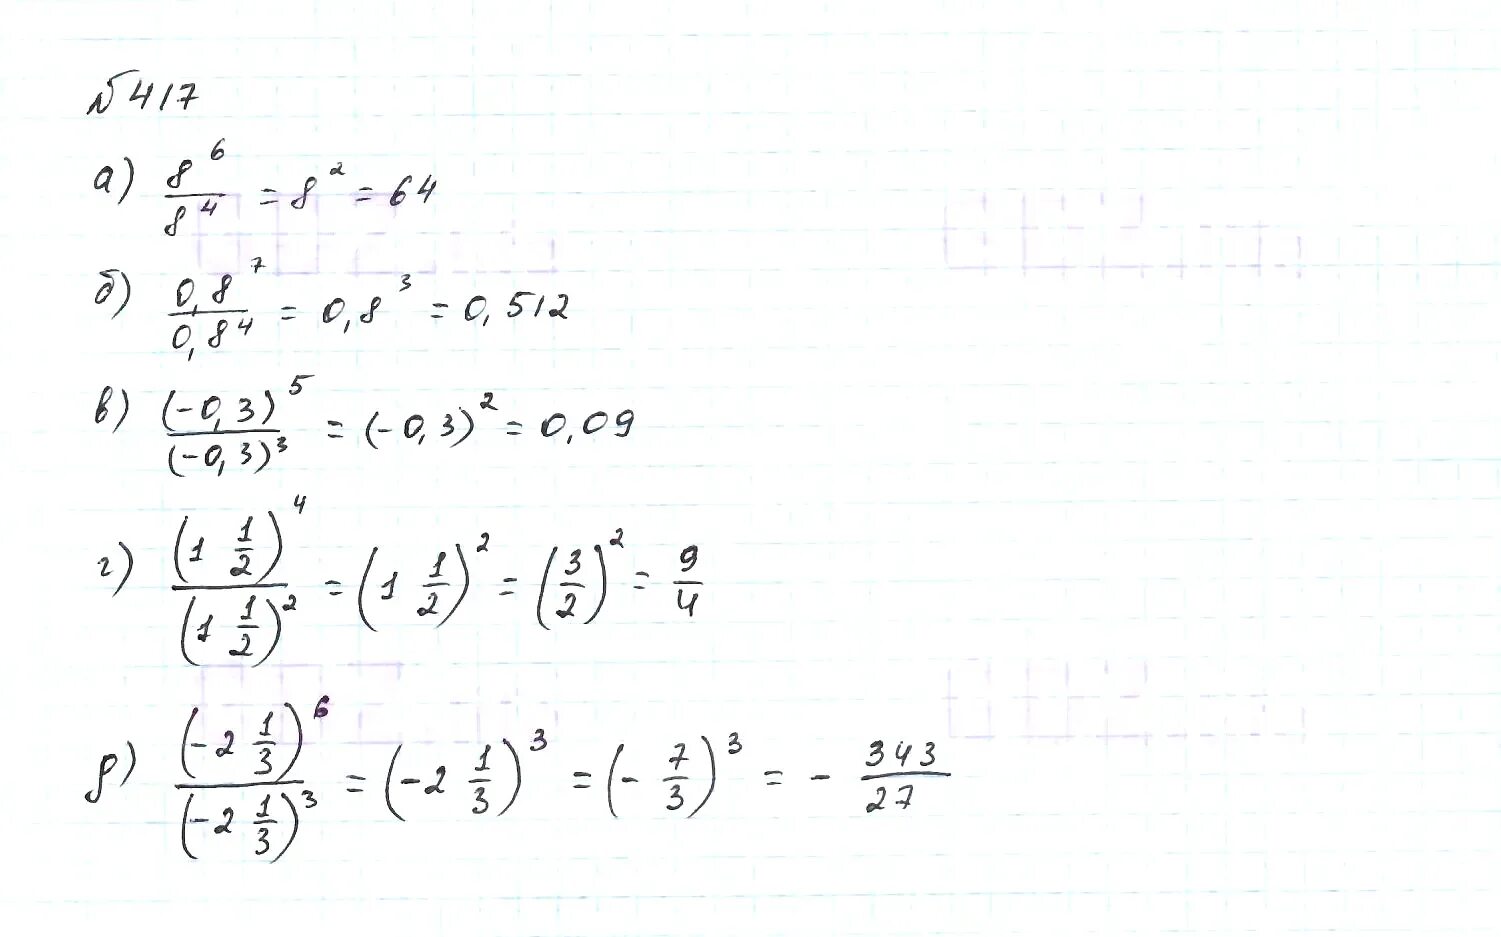 №417
а) 8^6/8^4 = 8^2 = 64
б) 0,8^7/0,8^4 = 0,8^3 = 0,512
в) (-0,3)^5/(-0,3)^3 = (-0,3)^2 = 0,09
г) (1 1/2)^4/(1 1/2)^2 = (1 1/2)^2 = (3/2)^2 = 9/4
д) (-2 1/3)^6/(-2 1/3)^3 = (-2 1/3)^3 = (-7/3)^3 = -343/27